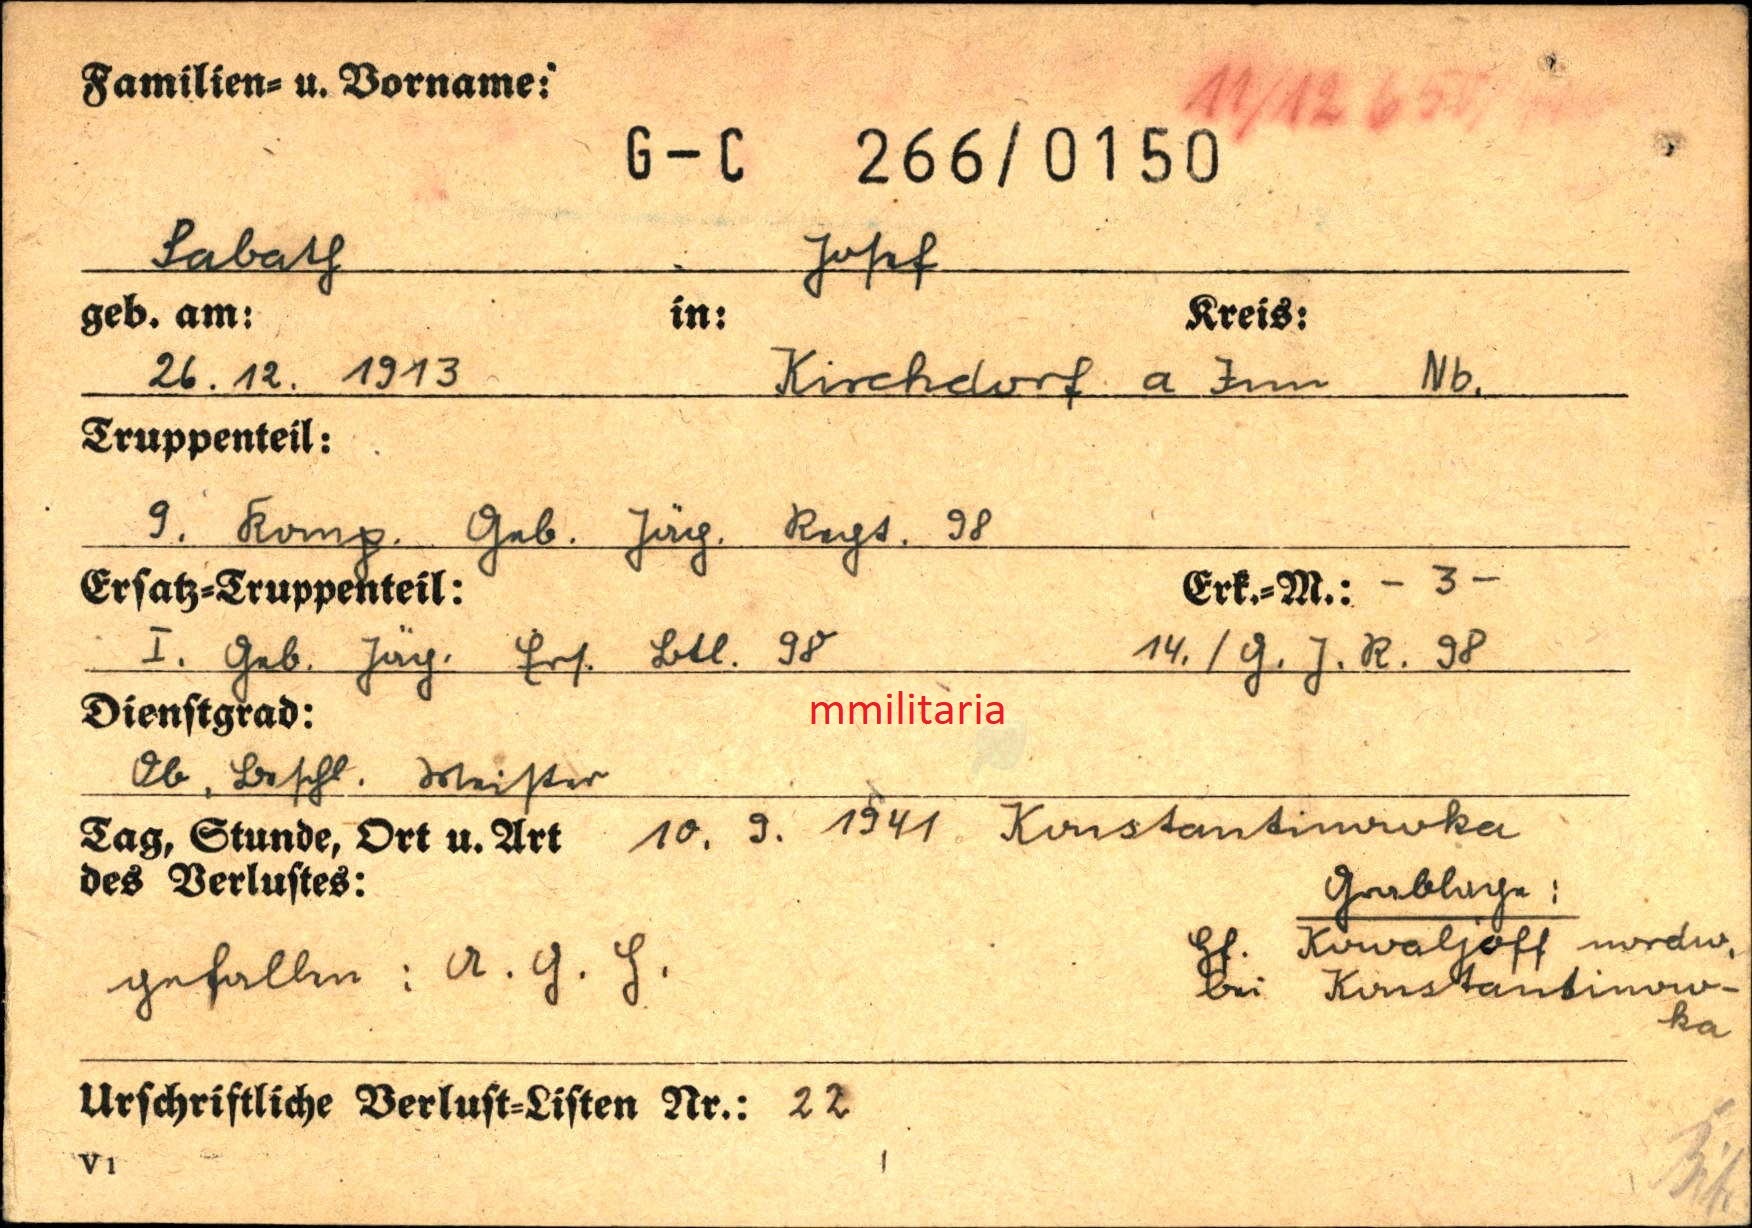 Familien- u. Vorname:
11/12 6
G-C 266/0150
Sabath Josef
geb. am: in: Kreis:
26. 12. 1913 Kirchdorf a Inn Nb.
Truppenteil:
9. Komp. Geb. Jäg. Regt. 98
Ersatz-Truppenteil: Erk.-M.: - 3 -
I. Geb. Jäg. Ers. Btl. 98 14. / G. J. R. 98
Dienstgrad:
Ob. Beschl. Meister
Tag, Stunde, Ort u. Art 10. 9. 1941 Konstantinowka
des Verlustes:
Grablage:
gefallen : A. G. H. Hf. Kowaljoff nordw.
bei Konstantinow-
ka
Urschriftliche Verlust-Listen Nr.: 22
V1
mmilitaria